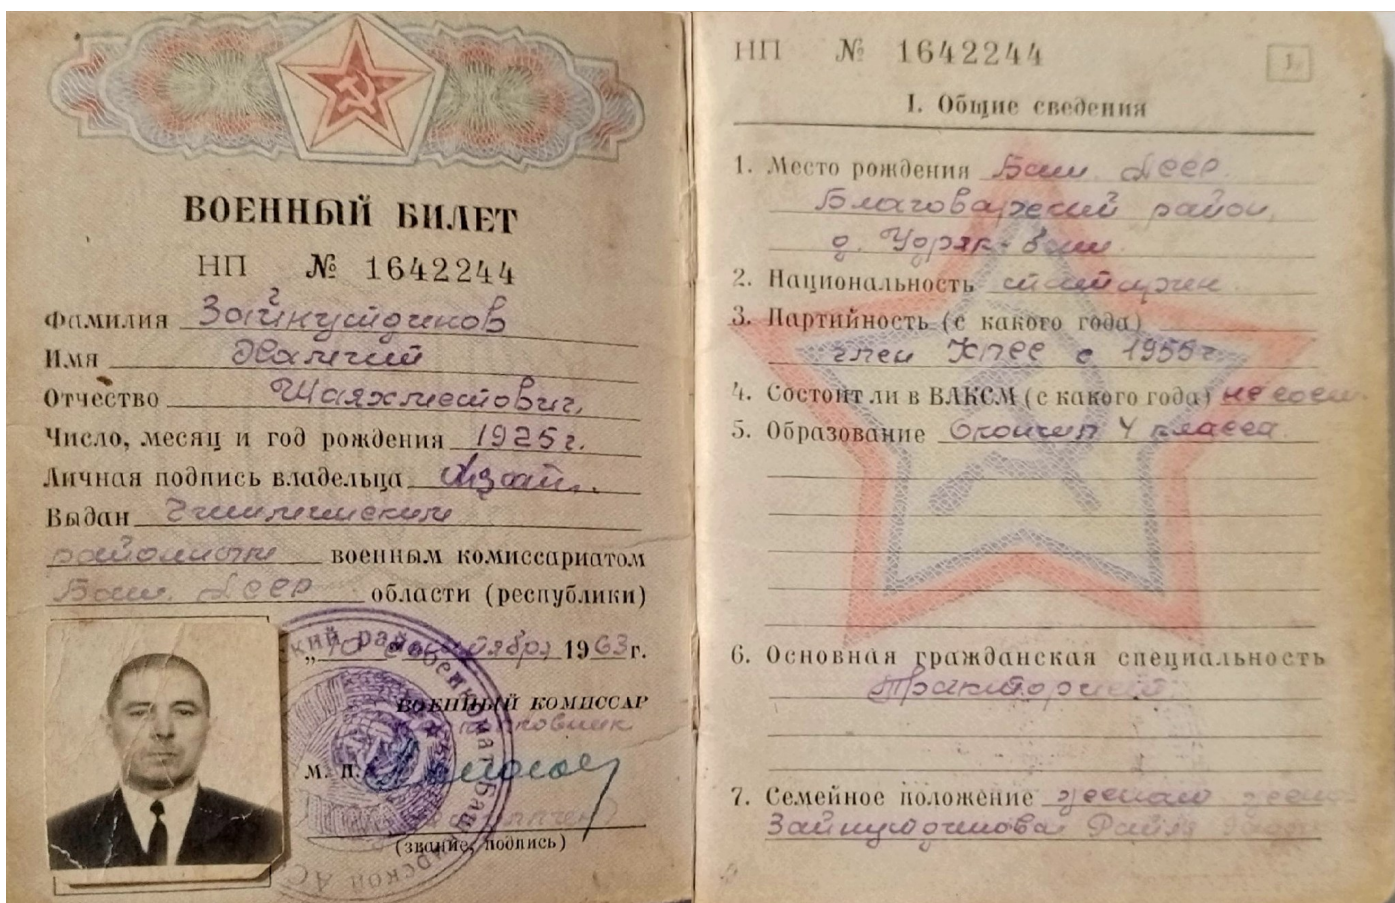 ВОЕННЫЙ БИЛЕТ
НП № 1642244
Фамилия Зайнутдинов
Имя Хамий
Отчество Шаяхметович,
Число, месяц и год рождения 1925г.
Личная подпись владельца
Выдан Чишминским
районным военным комиссариатом
Баш. АССР области (республики)
„10 сентября 1963г.
ВОЕННЫЙ КОМИССАР
М. П.
(звание, подпись)
НП № 1642244
1.
I. Общие сведения
1. Место рождения Баш. АССР.
Благоварский район,
д. Удряк-баш.
2. Национальность татарин.
3. Партийность (с какого года)
член КПСС с 1955г
4. Состоит ли в ВЛКСМ (с какого года) не сост.
5. Образование Окончил 4 класса
6. Основная гражданская специальность
Тракторист.
7. Семейное положение женат жена
Зайнутдинова